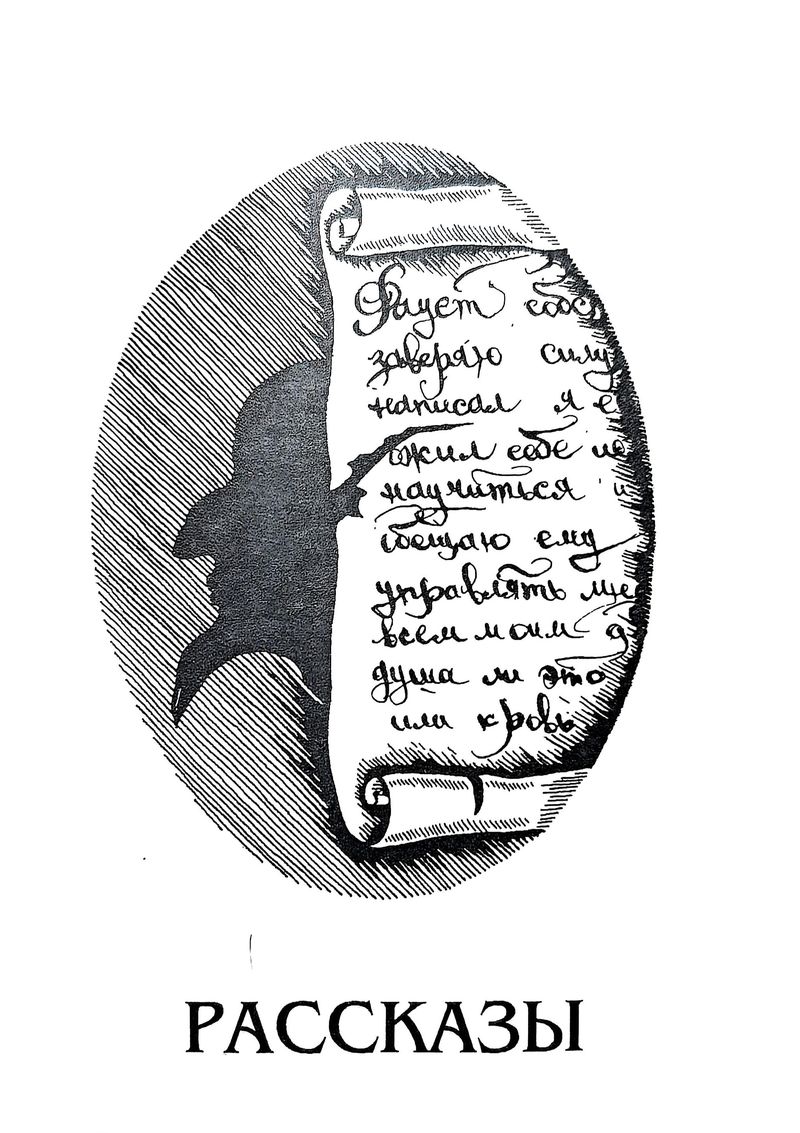 Фауст собс
заверяю силу
написал я е
ожил себе ис
научиться и
обещаю ему
управлять мне
всем моим д
душа ли это
или кровь
РАССКАЗЫ